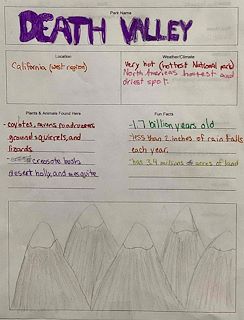 Park Name
DEATH VALLEY
Location
Weather/Climate
California (west region)
Very hot (hottest National park)
North Americas hottest and
driest spot.
Plants & Animals Found Here
Fun Facts
- coyotes, ravens, roadrunners
ground squirrels, and
lizards
- creosote bush
desert holly, and mesquite
- 1.7 billion years old
- less than 2 inches of rain falls
each year.
- has 3.4 millions of acres of land